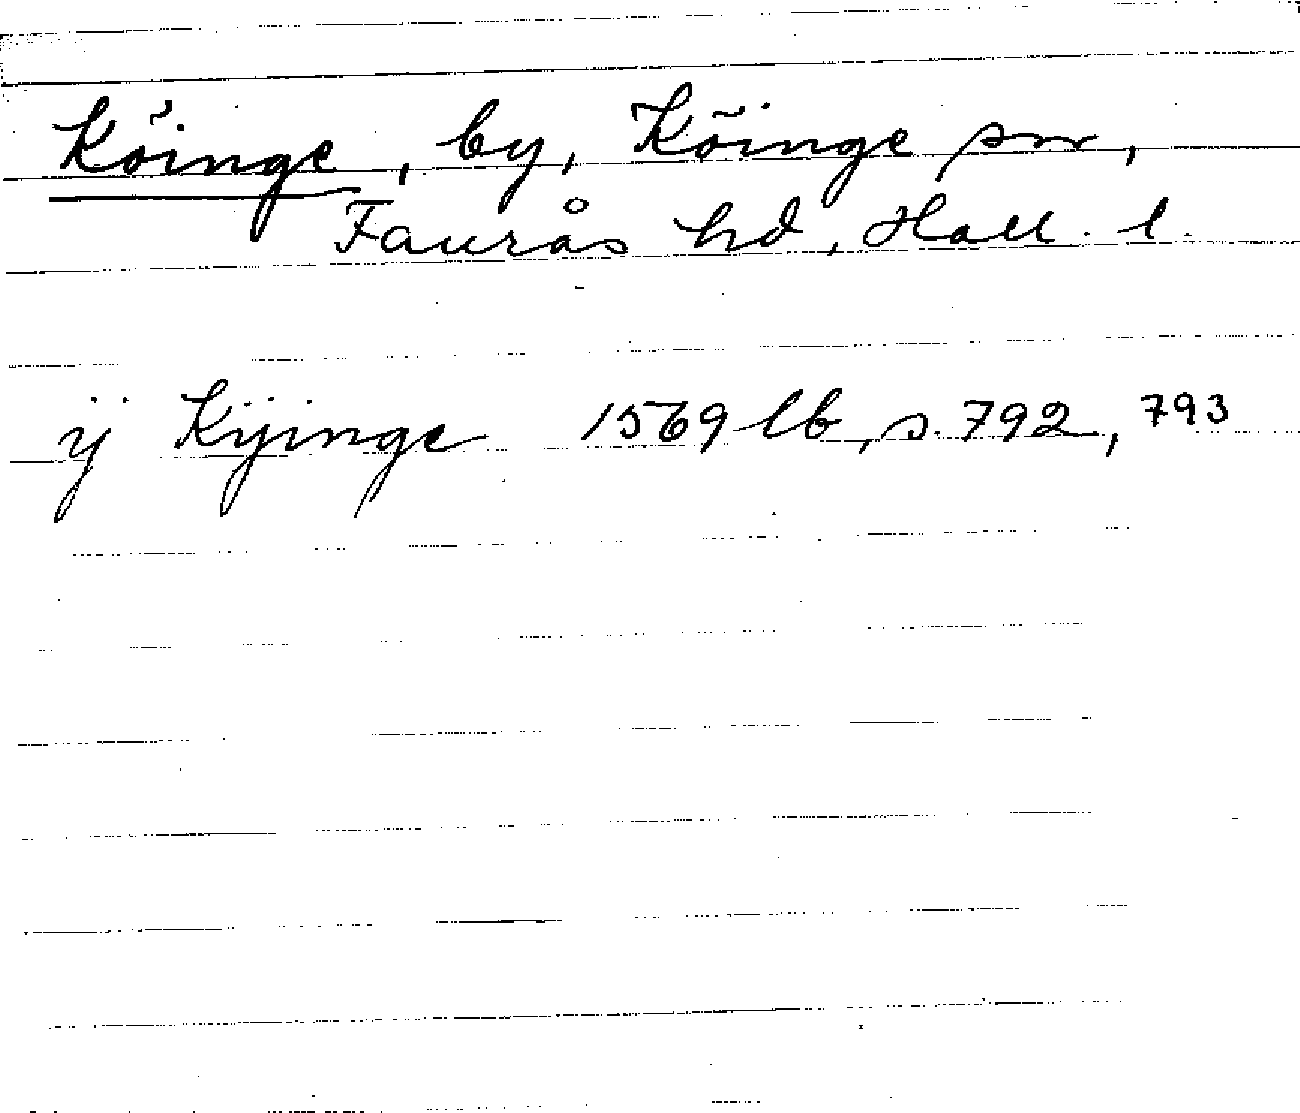 Köinge, by, Köinge sn,
Faurås hd, Hall. l.
ÿ Kÿinge 1569 lb, s. 792, 793